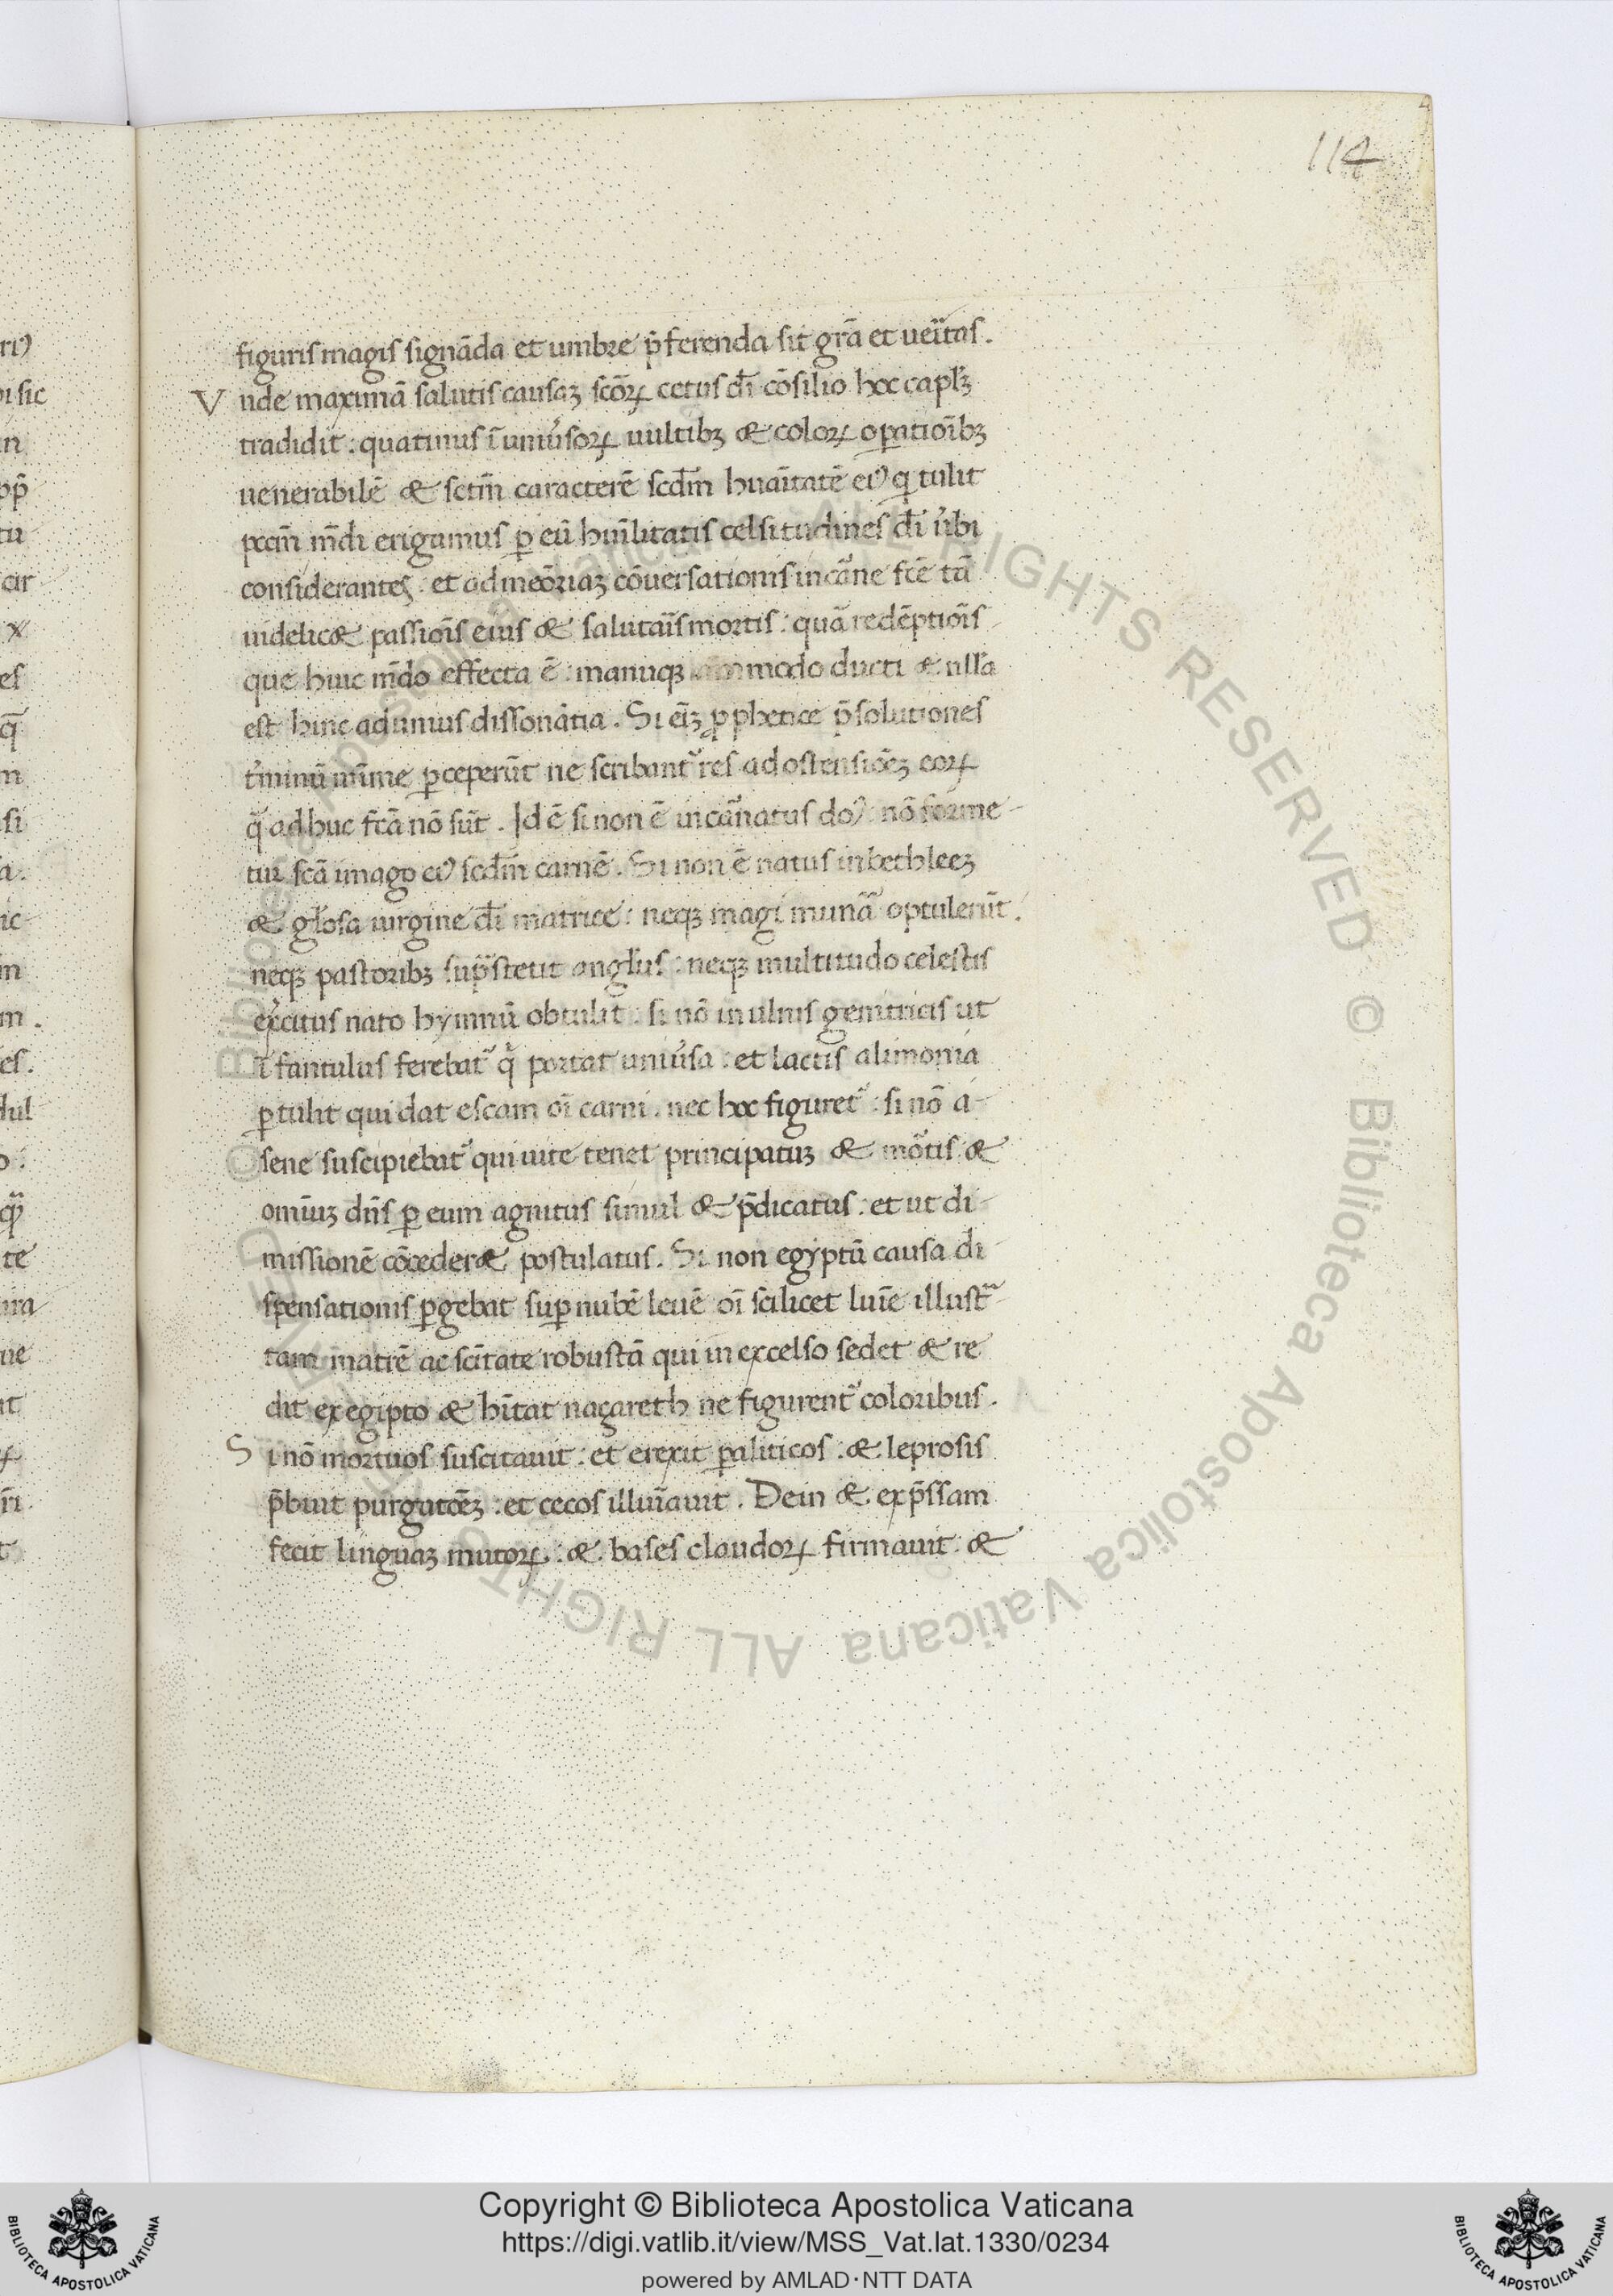 114
figuris magis signāda et umbre p̄ferenda sit gr̄a et ueı̄tas.
Vnde maximā salutis causaꝫ sc̄oꝝ cetus dı̄ cōsilio hoc capl̄ꝫ
tradidit: quatinus ı̄ uniu̓soꝝ uultibꝫ & coloꝝ oꝑatioı̄bꝫ
uenerabilē & sctm̄ caracterē scd̄m huaı̄tatē eiꝰ q̄ tulit
pccm̄ m̄di erigamus ꝑ eū huı̄litatis celsitudines dı̄ u̓bi
considerantes: et ad meōriaꝫ cōuersationis in cār̄ne fcē tā
uidelic& passiōis eius & salutaı̄s mortis: quā redēptiōis
que huic m̄do effecta ē: manuqꝫ modo ducti & nll̄a
est hinc adunius dissonātia. Si eı̄ꝫ ꝓphetice p̄solutiones
t̓minū mı̄me ꝑceperūt ne scribant᷑ res ad ostensiōeꝫ eoꝝ
q̄ adhuc fcā nō sūt. Id ē si non ē incar̄natus do᷒: nō forme-
tur sc̄a imago eiꝰ scd̄m carnē. Si non ē natus in bethleeꝫ
& gl̄osa uirgine dı̄ matrice: neqꝫ magi munā optulerūt.
neqꝫ pastoribꝫ sup̄stetit angl̄us: neqꝫ multitudo celestis
ex̓citus nato hymnū obtulit: si nō in ulnis genitricis ut
ı̄fantulus ferebat᷑ q̄ portat uniu̓sa: et lactis alimonia
ꝑtulit qui dat escam oı̄ carni. nec hoc figuret᷑: si nō a-
sene suscipiebat᷑ qui uite tenet principatuꝫ & mōtis &
omı̄uꝫ dn̄s ꝑ eum agnitus simul & p̄dicatus: et ut di-
missionē cōceder& postulatus. Si non egyptū causa di-
spensationis ꝑgebat suꝑ nubē leuē oı̄ scilicet luı̄e illustr̄a-
tam matrē ac scı̄tate robustā qui in excelso sedet & re
dit ex egipto & hı̄tat naçareth ne figurent᷑ coloribus.
Si nō mortuos suscitauit: et erexit ꝑaliticos: & leprosis
p̄buit purgatōeꝫ: et cecos illuı̄auit. Dein & exp̄ssam
fecit linguaꝫ mutoꝝ: & bases claudoꝝ firmauit: &
Copyright © Biblioteca Apostolica Vaticana
https://digi.vatlib.it/view/MSS_Vat.lat.1330/0234
powered by AMLAD·NTT DATA